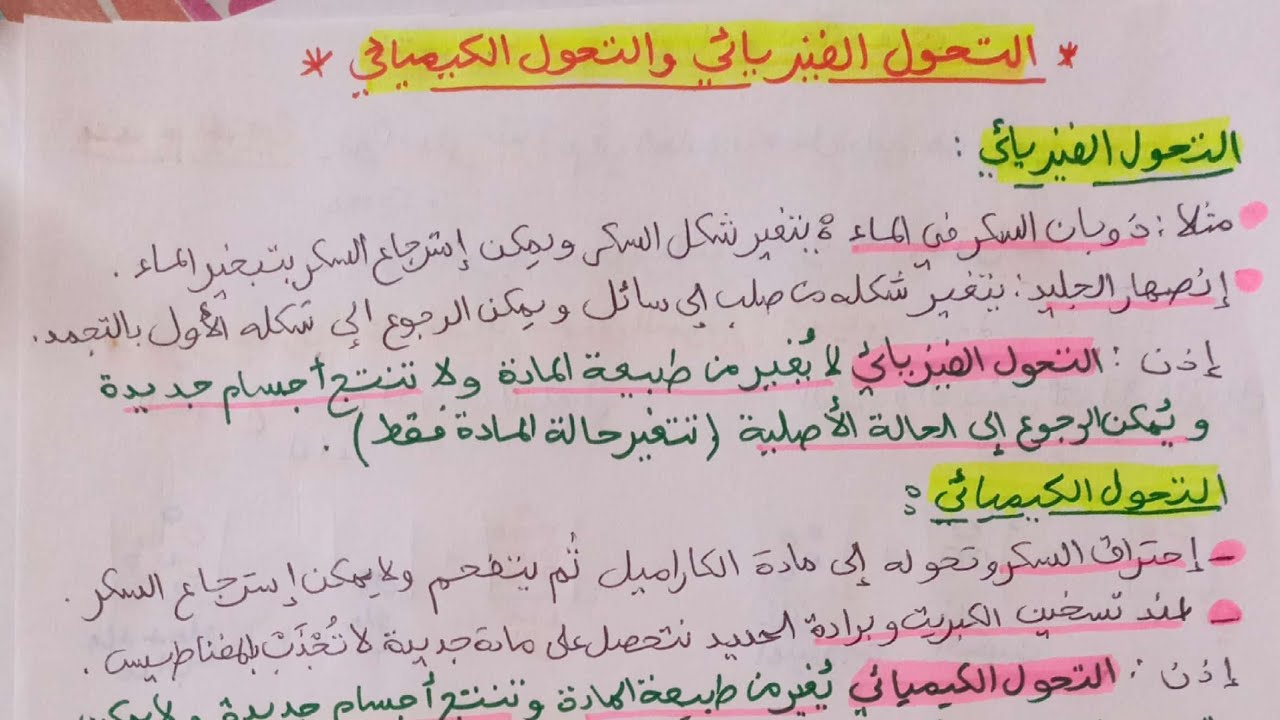 * التحول الفيزيائي والتحول الكيميائي *
التحول الفيزيائي :
مثلا : ذوبان السكر في الماء : يتغير شكل السكر ويمكن إسترجاع السكر بتبخير الماء .
إنصهار الجليد : يتغيّر شكله من صلب إلى سائل ويمكن الرجوع إلى شكله الأول بالتجمد .
إذن : التحول الفيزيائي لا يُغير من طبيعة المادة ولا تنتج أجسام جديدة
ويُمكن الرجوع إلى الحالة الأصلية (تتغير حالة المادة فقط) .
التحول الكيميائي :
- إحتراق السكر وتحوله إلى مادة الكاراميل ثُم يتفحم ولا يمكن إسترجاع السكر .
- عند تسخين الكبريت وبرادة الحديد نتحصل على مادة جديدة لا تُجْذَبْ بالمغناطيس .
إذن : التحول الكيميائي يُغير من طبيعة المادة وتنتج أجسام جديدة ولا يمكن